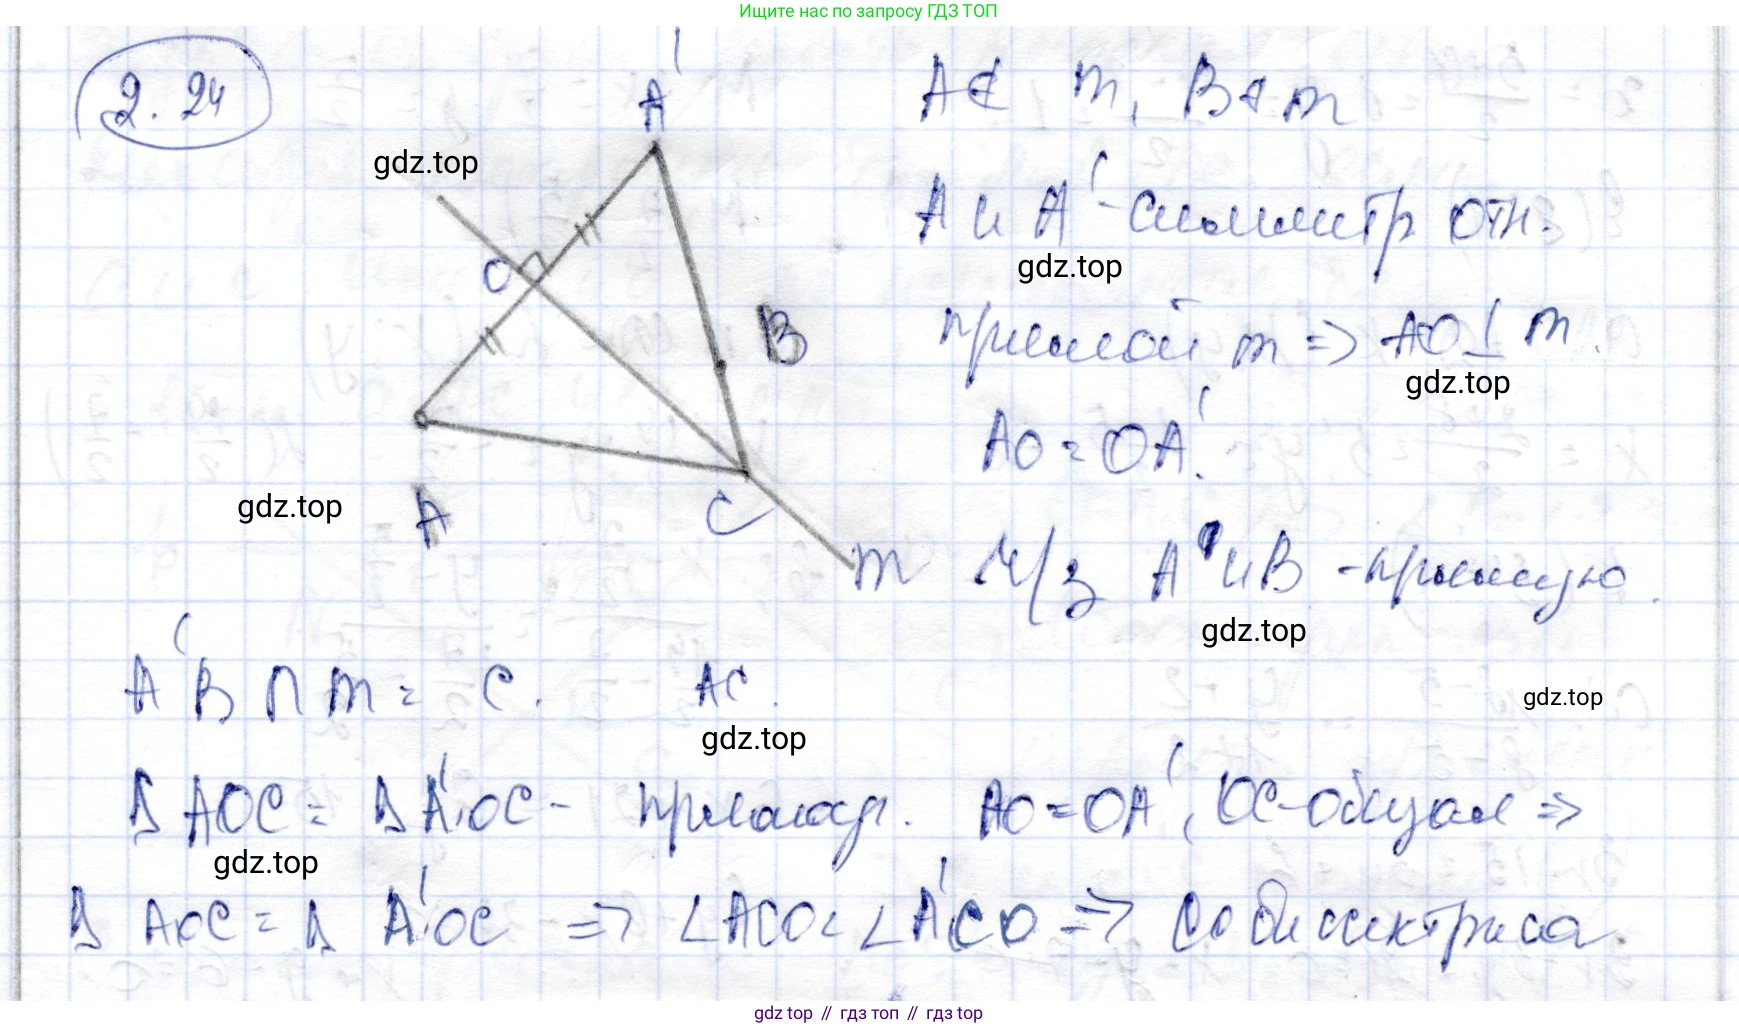 Ищите нас по запросу ГДЗ ТОП
2. 24
A'
A ∉ m, B ∉ m
gdz.top
A и A' - симметр отн.
gdz.top
O
прямой m => AO ⊥ m.
B
gdz.top
AO = OA'.
gdz.top
A
C
m
ч/з A' и B - прямую.
gdz.top
A'B ∩ m = C. AC.
gdz.top
gdz.top
Δ AOC = Δ A'OC - прямоуг. AO = OA', OC - общая =>
gdz.top
Δ AOC = Δ A'OC => ∠ACO = ∠A'CO => CO биссектриса.
gdz.top // гдз топ // гдз.top